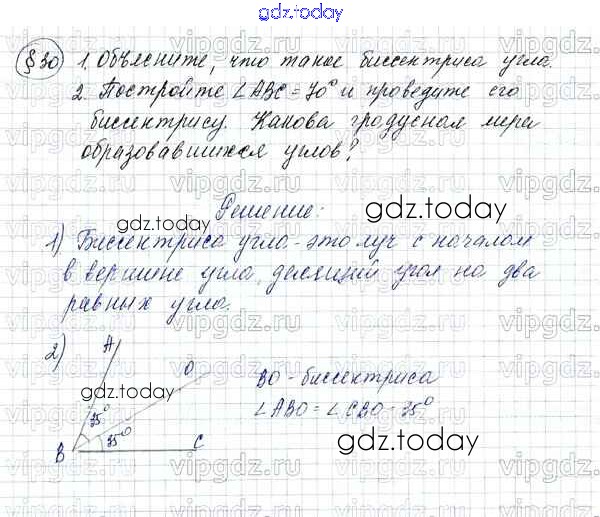 gdz.today
§30 1. Объясните, что такое биссектриса угла.
2. Постройте ∠ABC = 70° и проведите его
биссектрису. Какова градусная мера
образовавшихся углов?
Решение:
gdz.today
gdz.today
1) Биссектриса угла - это луч с началом
в вершине угла, делящий угол на два
равных угла.
2) A
O
gdz.today
BO - биссектриса
35°
∠ABO = ∠CBO - 35°
35°
B
C
gdz.today
vipgdz.ru